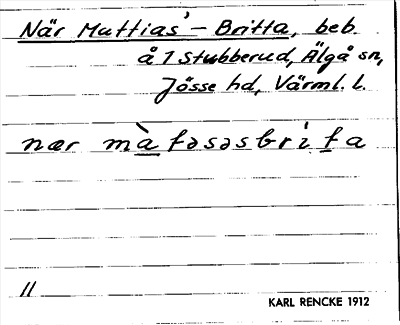 När Mattias' - Britta, beb.
å 1 Stubberud, Älgå sn,
Jösse hd, Värml. l.
nær màtəsəsbrìta
11
KARL RENCKE 1912